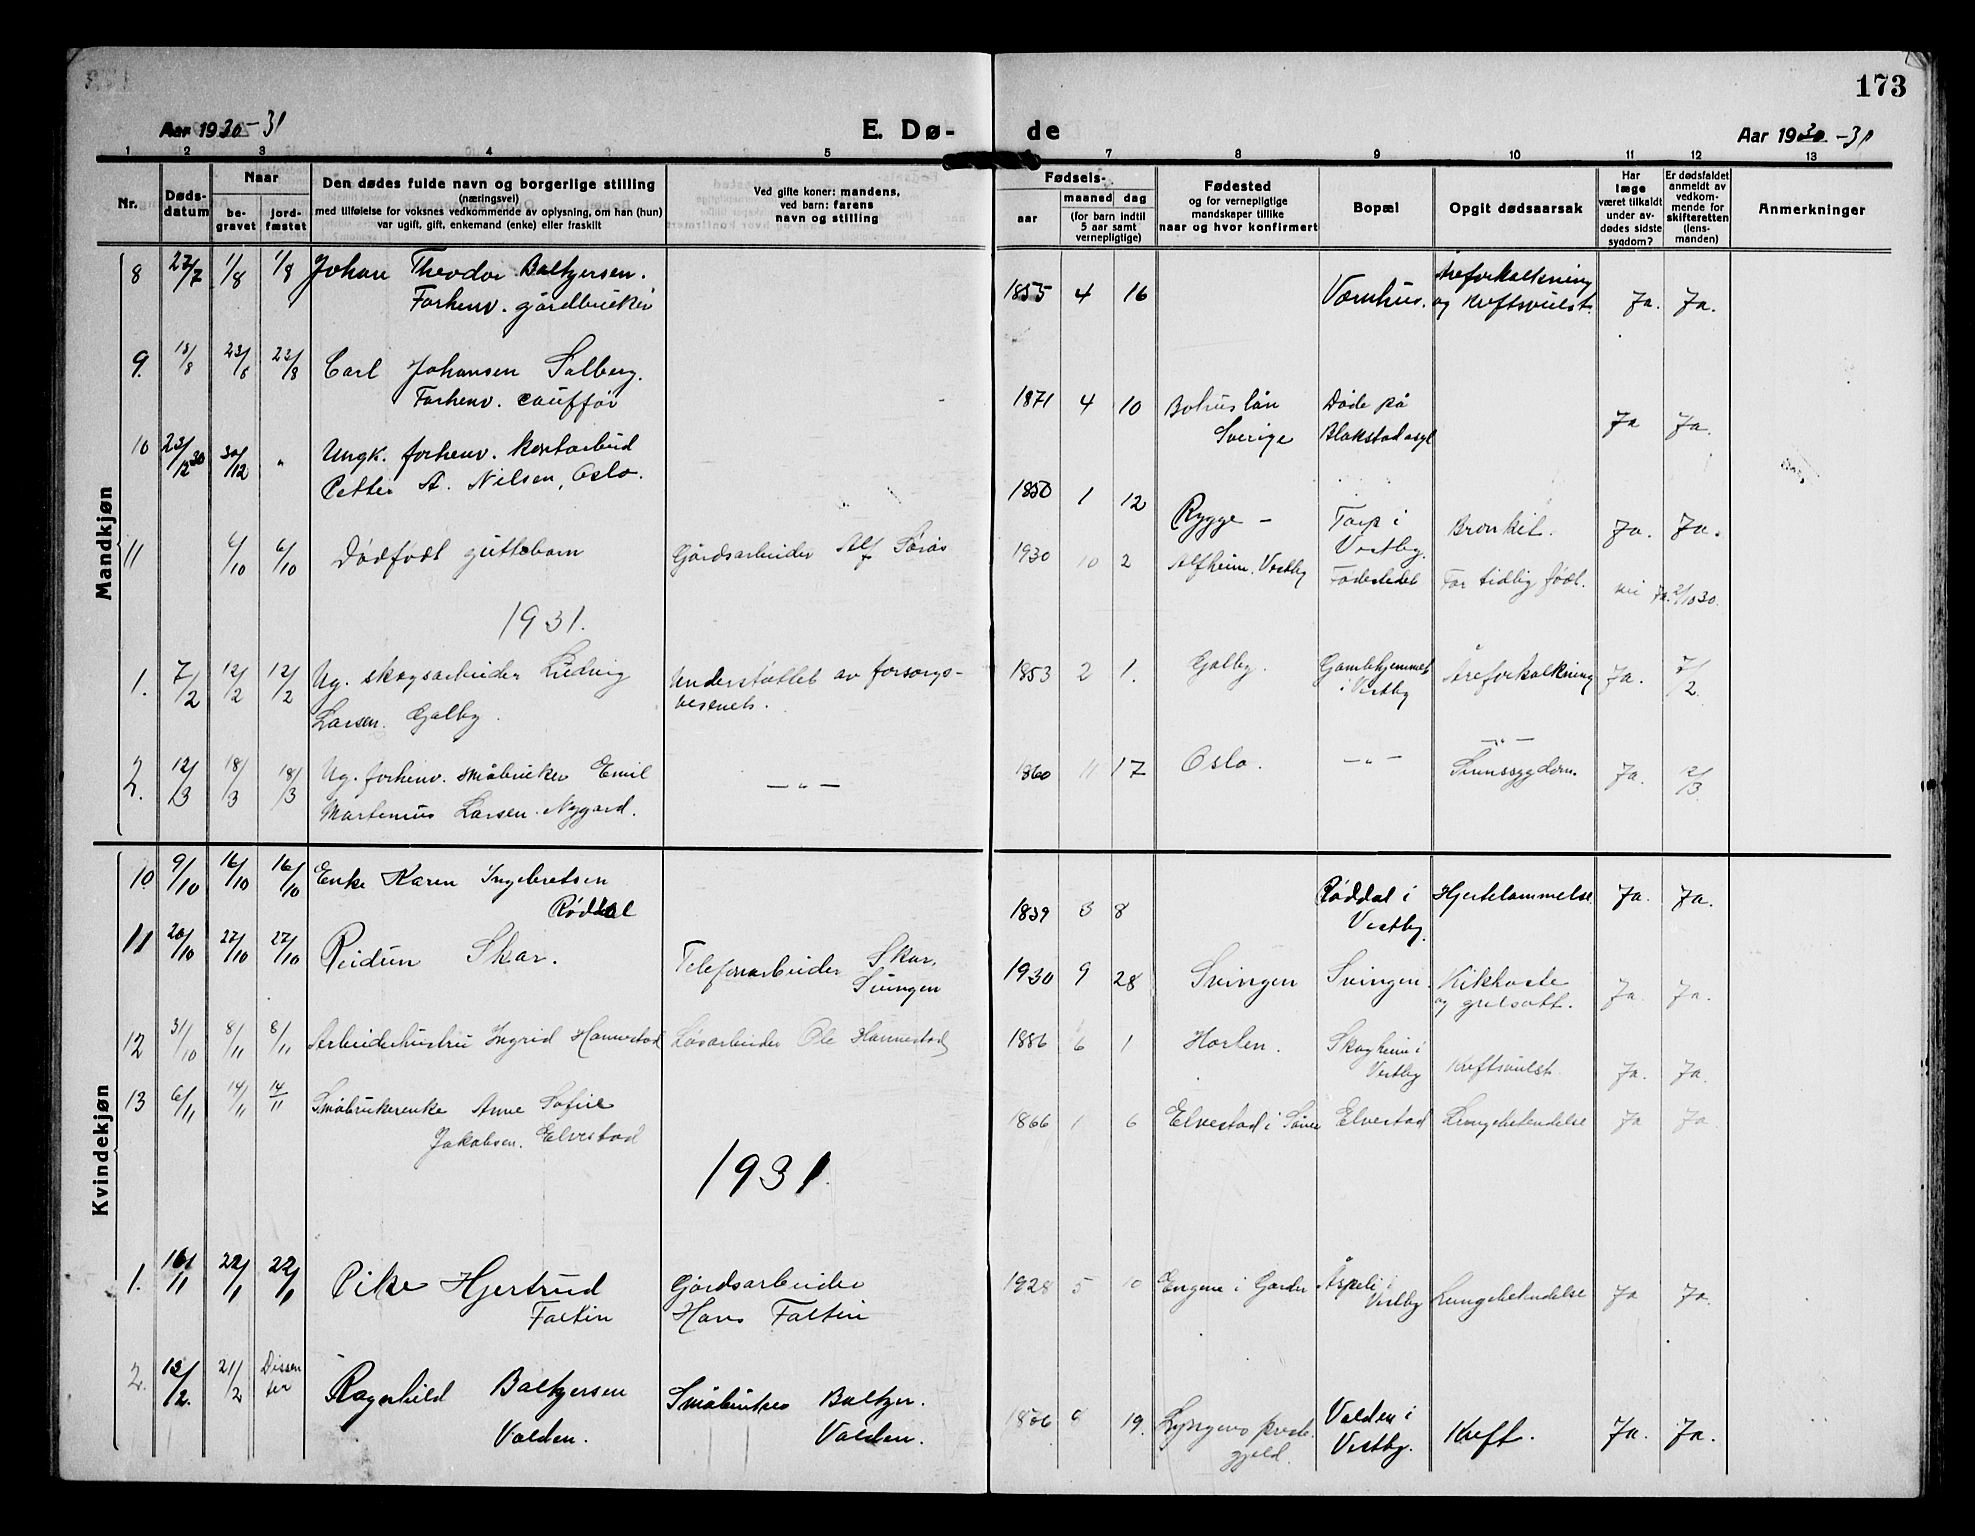 173
Aar 1930-31
E. Dø-
de
Aar 1930-31
1 2 3 4 5 7 8 9 10 11 12 13
Nr.
Døds-
datum
Naar
be-
gravet
jord-
fæstet
Den dødes fulde navn og borgerlige stilling
(næringsvei)
med tilføielse for voksnes vedkommende av oplysning, om han (hun)
var ugift, gift, enkemand (enke) eller fraskilt
Ved gifte koner: mandens,
ved barn: farens
navn og stilling
Fødsels-
aar
maaned dag
(for barn indtil
5 aar samt
vernepligtige)
Fødested
og for vernepligtige
mandskaper tillike
naar og hvor konfirmert
Bopæl
Opgit dødsaarsak
Har
læge
været tilkaldt
under av-
dødes sidste
sygdom?
Er dødsfaldet
anmeldt av
vedkom-
mende for
skifteretten
(lens-
manden)
Anmerkninger
Mandkjøn
8 27/7 1/8 1/8 Johan Theodor Baltzersen.
Forhenv. gårdbruker
1855 4 16 Værnhus. Åreforkalkning
og Kreftsvulst. Ja. Ja.
9. 18/8 23/8 23/8 Carl Johansen Solberg.
Forhenv. cauffør
1871 4 10 Bohuslän Døde på
Sverige Blakstad asyl Ja Ja.
10 23/12 30 30/12 " Ungk. forhenv. kontorbud
Petter A. Nilsen, Oslo.
1850 1 12 Rygge – Torp i
Vestby. Bronkit. Ja. Ja.
11 6/10 6/10 Dødfødt guttebarn Gårdsarbeider Alf Sørås
1930 10 2 Alfheim. Vestby Fødestedet For tidlig født. nei Ja. 2/10 30.
1931.
1. 7/2 12/2 12/2 Ug. skogsarbeider Ludvig Understøttet av forsorgs-
Larsen. Galby. vesenet.
1853 2 1. Galby. Gamlehjemmet
i Vestby Åreforkalkning Ja. 7/2
2. 12/3 18/3 18/3 Ug. forhenv. småbruker Emil
Martenius Larsen. Nygård. — " —
1860 11 17 Oslo. — " — — " —
Sinnssygdom. Ja. 12/3.
Kvindekjøn
10 9/10 16/10 16/10 Enke Karen Ingebretsen
Røddal
1839 3 8 Røddal i
Vestby. Hjertelammelse Ja. Ja.
11 20/10 27/10 27/10 Reidun Skar. Telefonarbeider Skar,
Svingen
1930 9 28 Svingen Svingen. Kikhoste
og gulsott. Ja. Ja.
12 31/10 8/11 8/11 Arbeiderhustru Ingrid Hannestad Løsarbeider Ole Hannestad
1886 6 1 Horten. Skogheim i
Vestby Kreftsvulst. Ja. Ja.
13 6/11 14/11 14/11 Småbrukerenke Anne Sofie
Jakobsen. Elvestad
1866 1 6 Elvestad i Såner Elvestad Lungebetendelse Ja Ja.
1931.
1. 16/1 22/1 22/1 Pike Hjertrud Gårdsarbeider
Faltin Hans Faltin
1928 5 10 Engene i Garder Åspeli i
Vestby Lungebetendelse Ja Ja.
2. 13/2. 21/2 Dissen
ter Ragnhild Baltzersen Småbruker Baltzer.
Valden. Valden.
19. Lyngens preste
gjeld. Valden i
Vestby. Kreft. Ja. Ja.